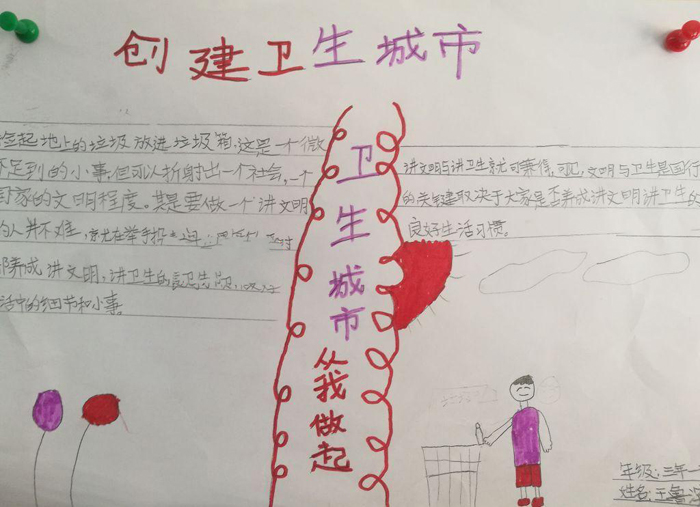 创建卫生城市
捡起地上的垃圾放进垃圾箱,这是一个微
不足到的小事,但可以折射出一个社会,一个
国家的文明程度。其是要做一个讲文明
的人并不难,就在举手投
养成讲文明,讲卫生的
活中的细节和小事
卫生城市
从我做起
讲文明与讲卫生
文明与卫生是
的关键取决于大家是否养成讲文明讲卫生的
良好生活习惯。
年级:三年
姓名:王